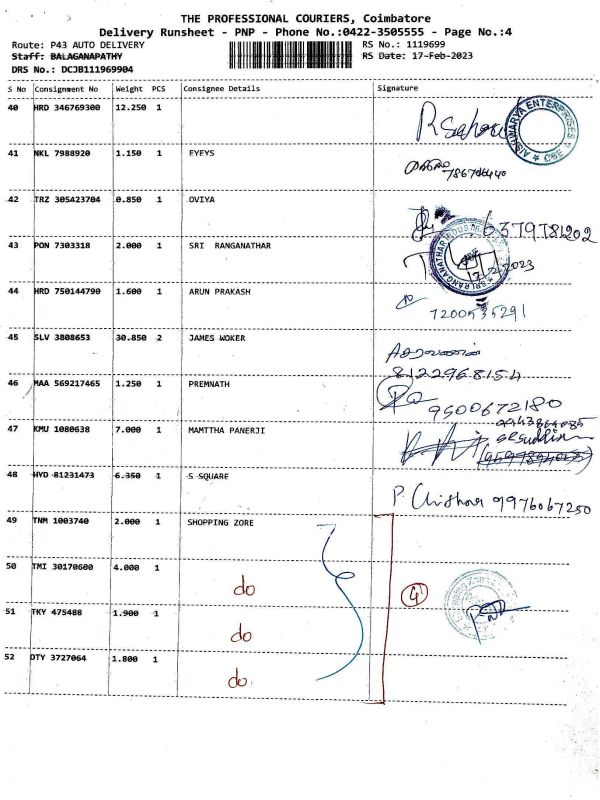 THE PROFESSIONAL COURIERS, Coimbatore
Delivery Runsheet - PNP - Phone No.:0422-3505555 - Page No.:4
Route: P43 AUTO DELIVERY RS No.: 1119699
Staff: BALAGANAPATHY RS Date: 17-Feb-2023
DRS No.: DCJB111969904
S No Consignment No Weight PCS Consignee Details Signature
40 HRD 346769300 12.250 1
AISHWARYA ENTERPRISES CBE
41 NKL 7988920 1.150 1 EYEYS
42 TRZ 305423704 0.850 1 OVIYA
6379781202
43 PON 7303318 2.000 1 SRI RANGANATHAR
44 HRD 750144790 1.600 1 ARUN PRAKASH
7200535291
45 SLV 3808653 30.850 2 JAMES WOKER
8122968154
46 MAA 569217465 1.250 1 PREMNATH
9500672180
47 KMU 1080638 7.000 1 MAMTTHA PANERJI
48 HYD 81231473 6.350 1 S SQUARE
9976067250
49 TNM 1003740 2.000 1 SHOPPING ZORE
50 TMI 30170600 4.000 1
do
4
51 TKY 475488 1.900 1
do
52 OTY 3727064 1.800 1
do.